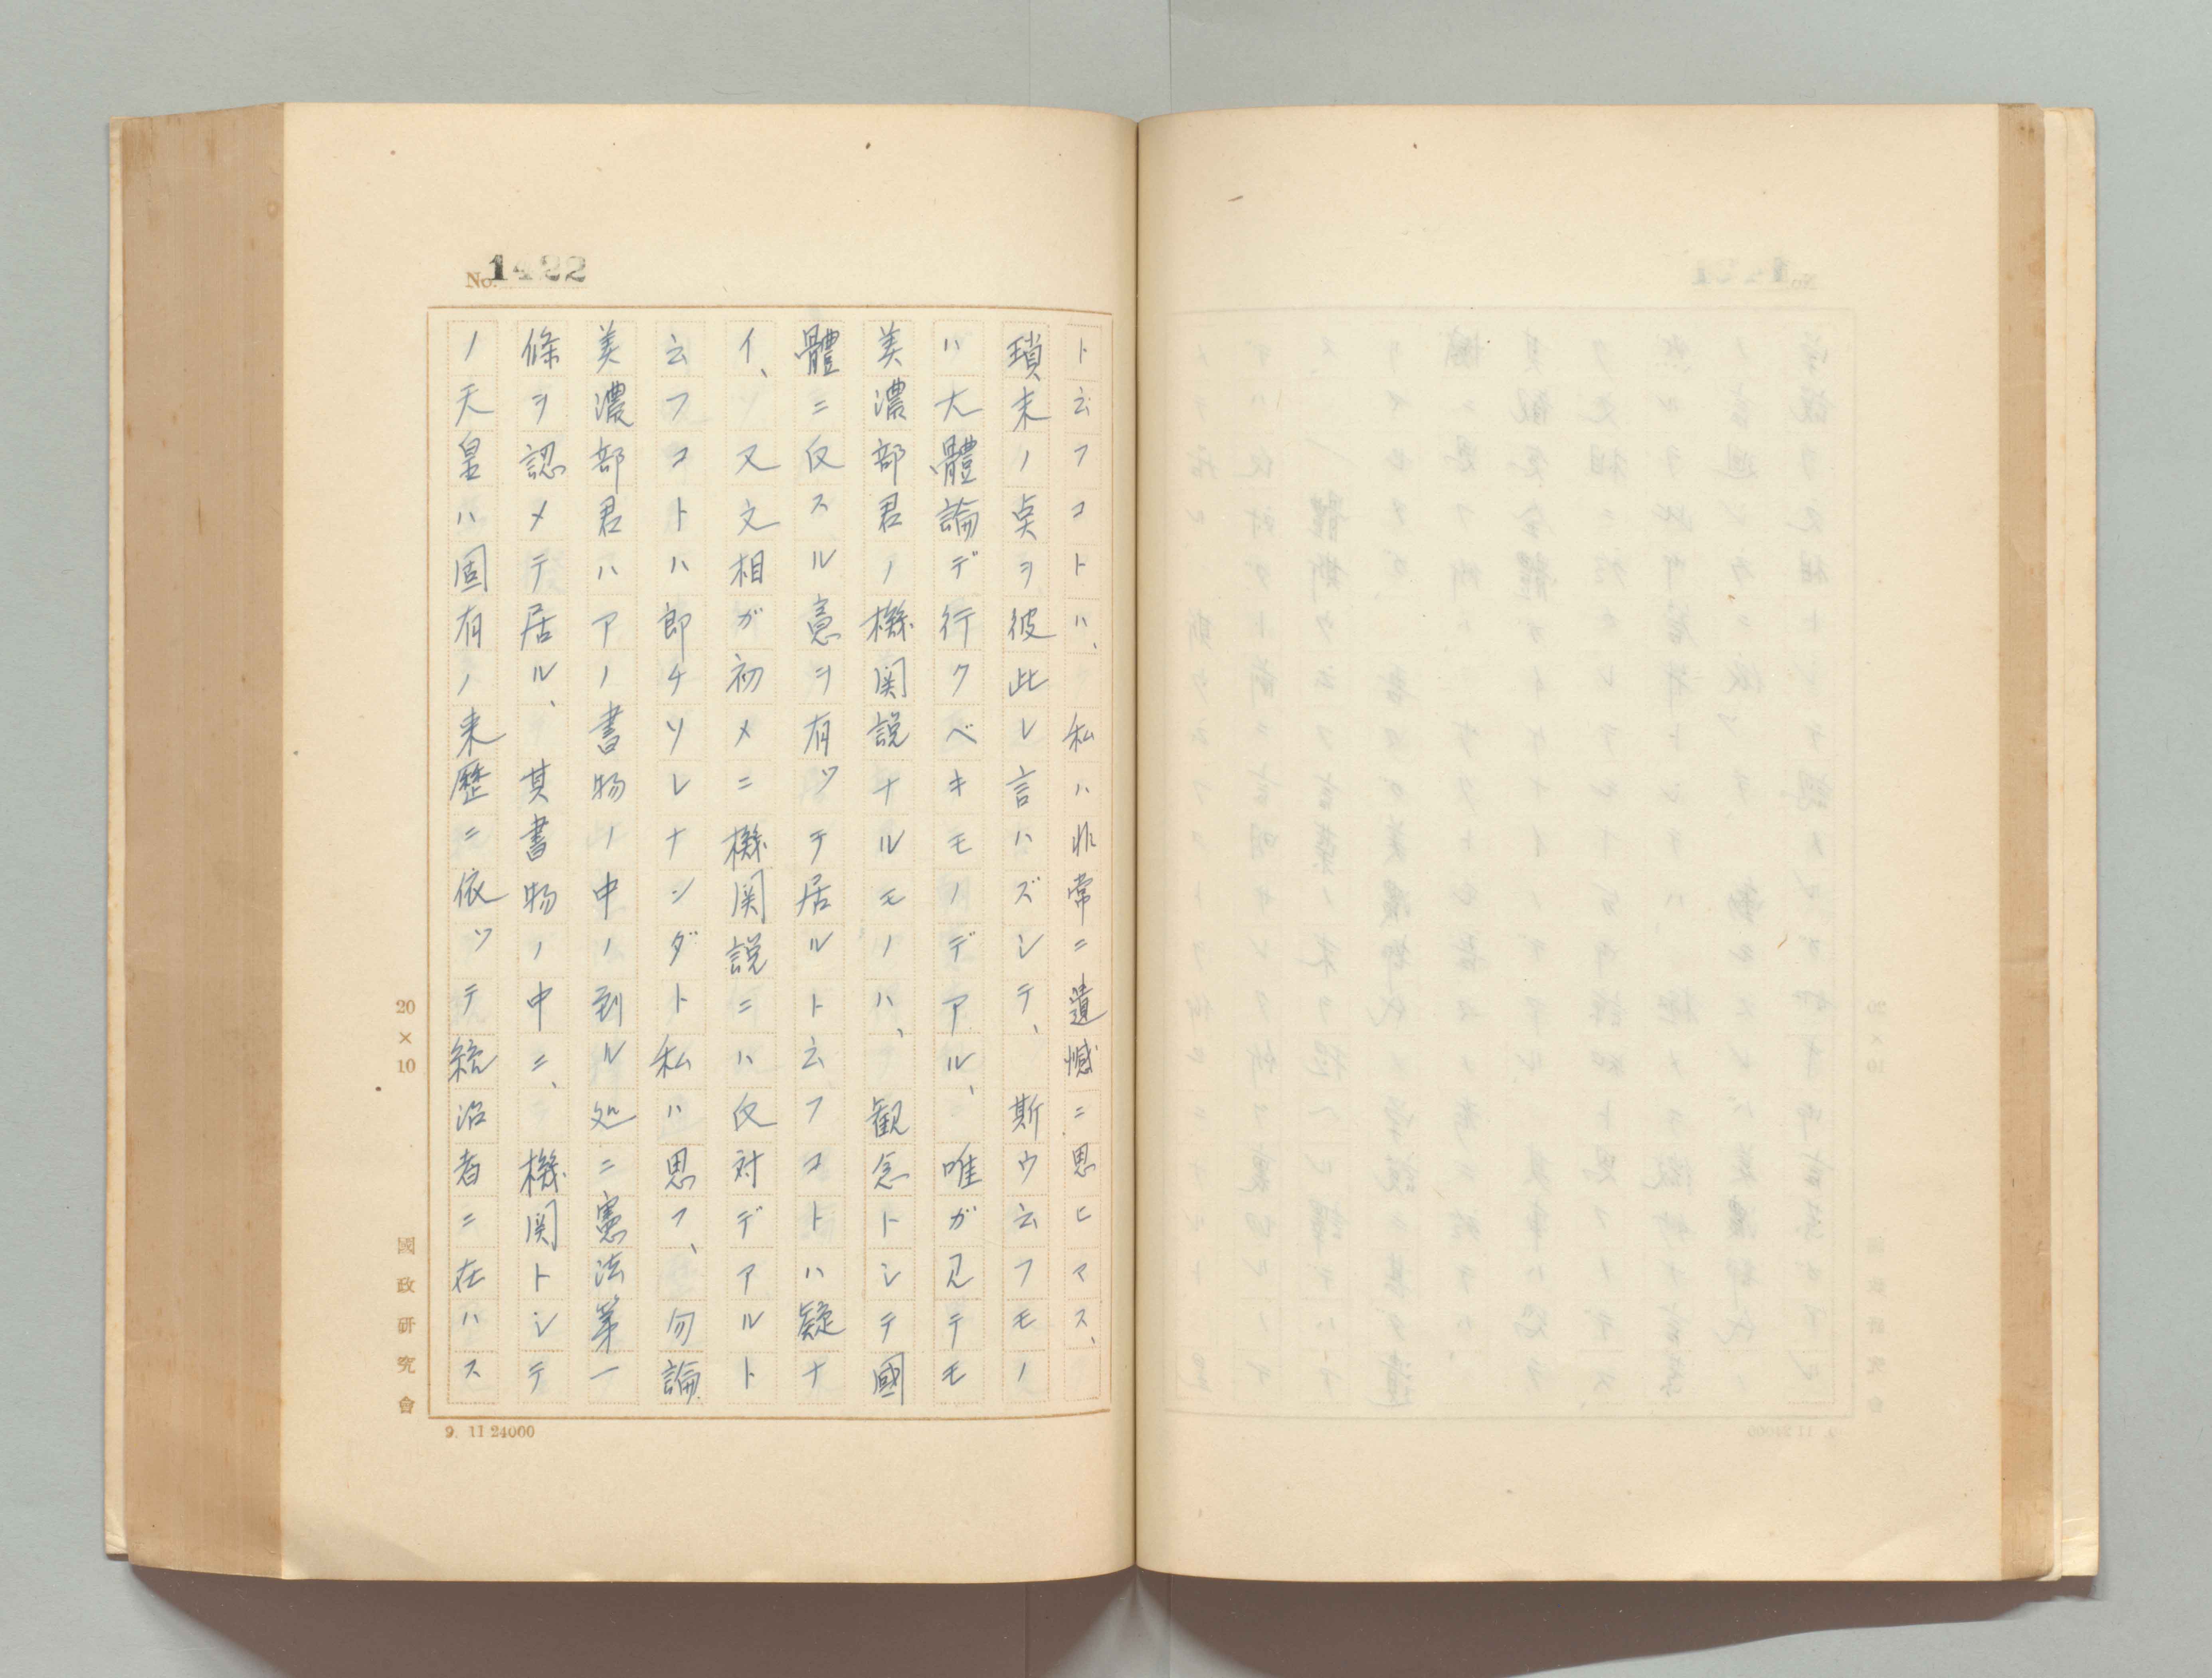 No. 1422
ト云フコトハ、私ハ非常ニ遺憾ニ思ヒマス、
瑣末ノ点ヲ彼此レ言ハズシテ、斯ウ云フモノ
ハ大體論デ行クベキモノデアル、唯ガ見テモ
美濃部君ノ機関説ナルモノハ、観念トシテ國
體ニ反スル意ヲ有ツテ居ルト云フコトハ疑ナ
イ、又文相ガ初メニ機関説ニハ反対デアルト
云フコトハ即チソレナンダト私ハ思フ、勿論
美濃部君ハアノ書物ノ中ノ到ル処ニ憲法第一
條ヲ認メテ居ル、其書物ノ中ニ、機関トシテ
ノ天皇ハ固有ノ来歴ニ依ツテ統治者ニ在ハス
20×10
國政研究會
9. 11 24000